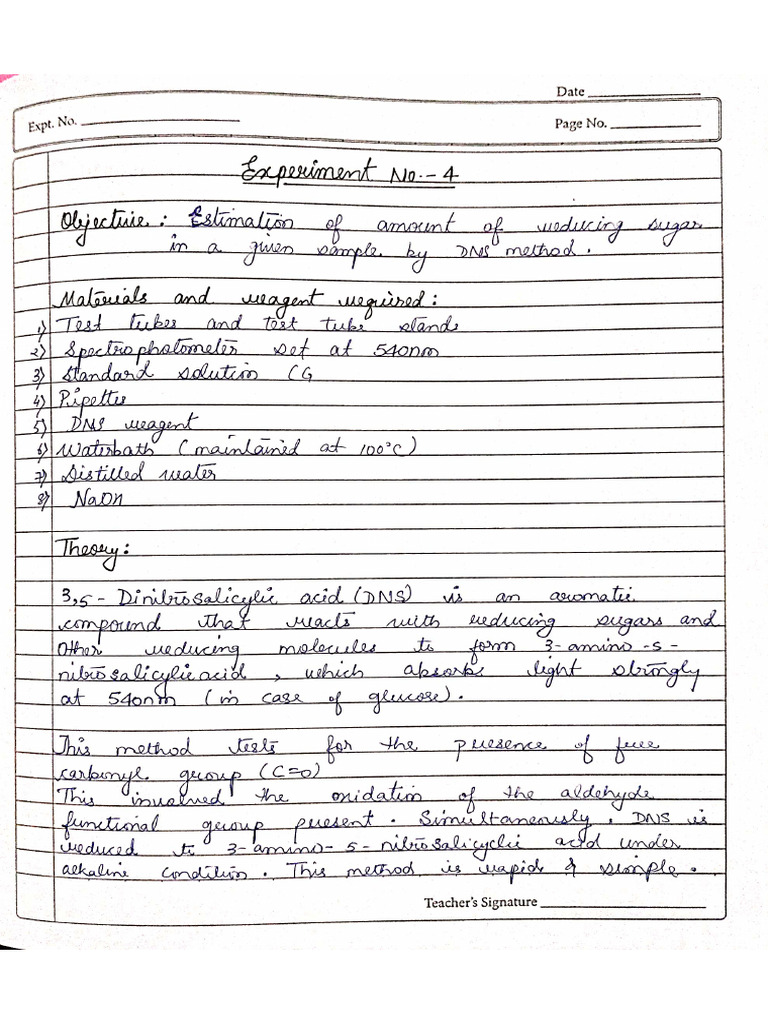 Date
Expt. No.
Page No.
Experiment No.-4
Objective: Estimation of amount of reducing sugar
in a given sample by DNS method.
Materials and reagent required:
1) Test tubes and test tube stands
2) Spectrophotometer set at 540nm
3) Standard solution (G
4) Pipettes
5) DNS reagent
6) Waterbath (maintained at 100°C)
7) Distilled water
8) NaOH
Theory:
3,5-Dinitrosalicylic acid (DNS) is an aromatic
compound that reacts with reducing sugars and
other reducing molecules to form 3-amino-5-
nitrosalicylic acid, which absorbs light strongly
at 540nm (in case of glucose).
This method tests for the presence of free
carbonyl group (C=O)
This involved the oxidation of the aldehyde
functional group present. Simultaneously, DNS is
reduced to 3-amino-5-nitrosalicyclic acid under
alkaline condition. This method is rapid & simple.
Teacher's Signature